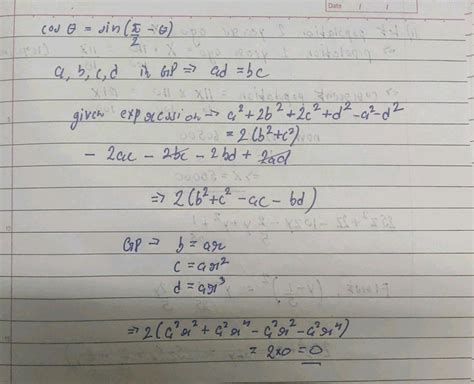 Date
cos θ = sin(π/2 − θ)
a, b, c, d in GP ⇒ ad = bc
given expression → a² + 2b² + 2c² + d² − a² − d²
= 2(b² + c²)
− 2ac − 2bc − 2bd + 2ad
⇒ 2(b² + c² − ac − bd)
GP → b = ar
c = ar²
d = ar³
⇒ 2(a²r² + a²r⁴ − a²r² − a²r⁴)
= 2×0 = 0